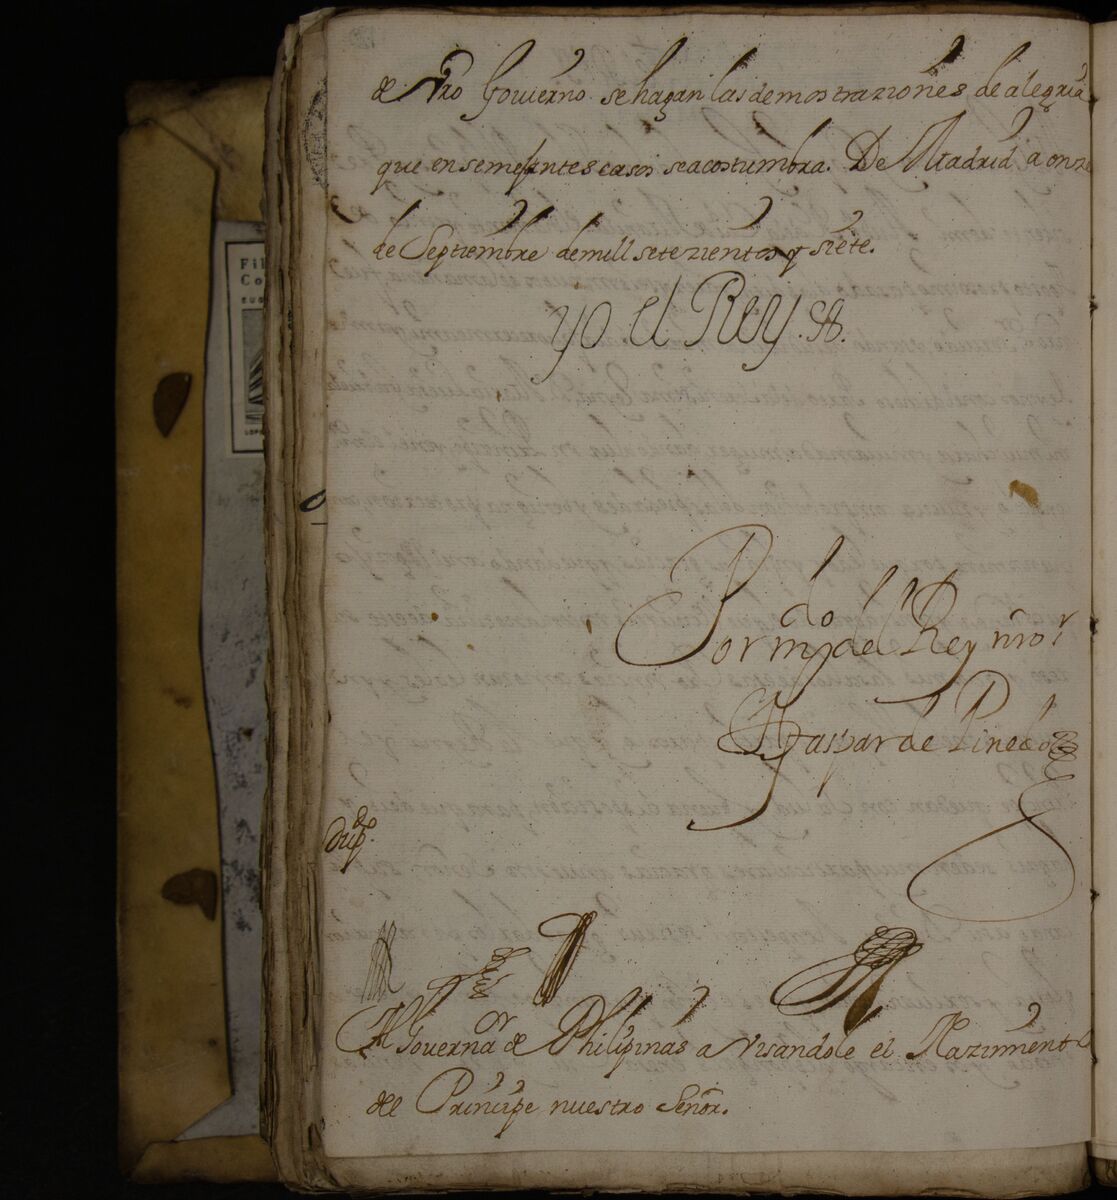 de Vro Govierno se hagan las demostraziones de alegria
que en semejantes casos se acostumbra. De Madrid a onze
de Septiembre de mill setezientos y siete.
Yo el Rey.
Por mdo del Rey nro sr
Gaspar de Pinedo
Dupdo.
Al Governaor de Philipinas avisandole el Nazimiento
del Principe nuestro Señor.
Fil
Co